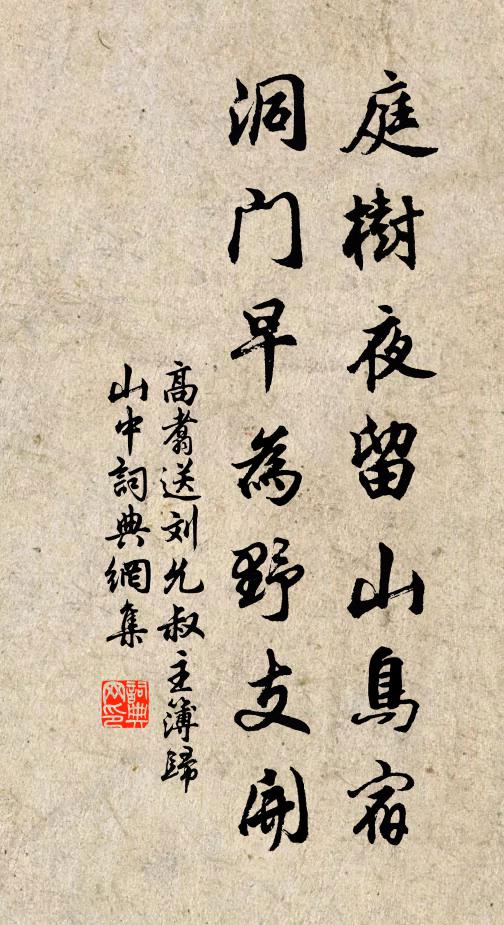 庭樹夜留山鳥宿
洞门早為野支開
高翥送刘允叔主簿歸
山中詞典網集
詞典网印